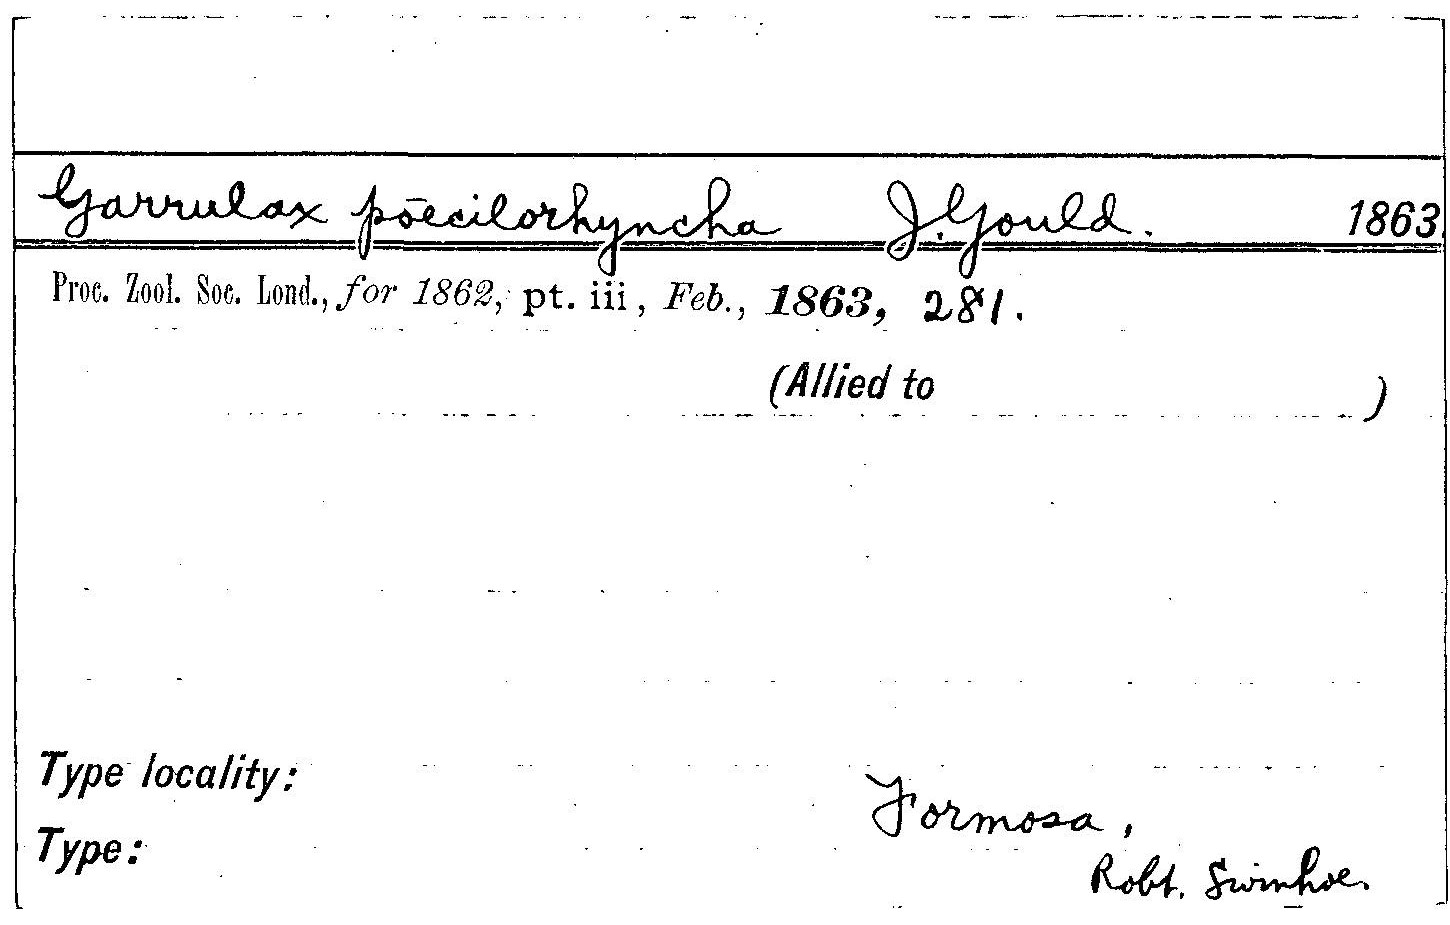 Garrulax poecilorhyncha J. Gould. 1863.
Proc. Zool. Soc. Lond., for 1862, pt. iii, Feb., 1863, 281.
(Allied to )
Type locality: Formosa,
Type: Robt. Swinhoe.